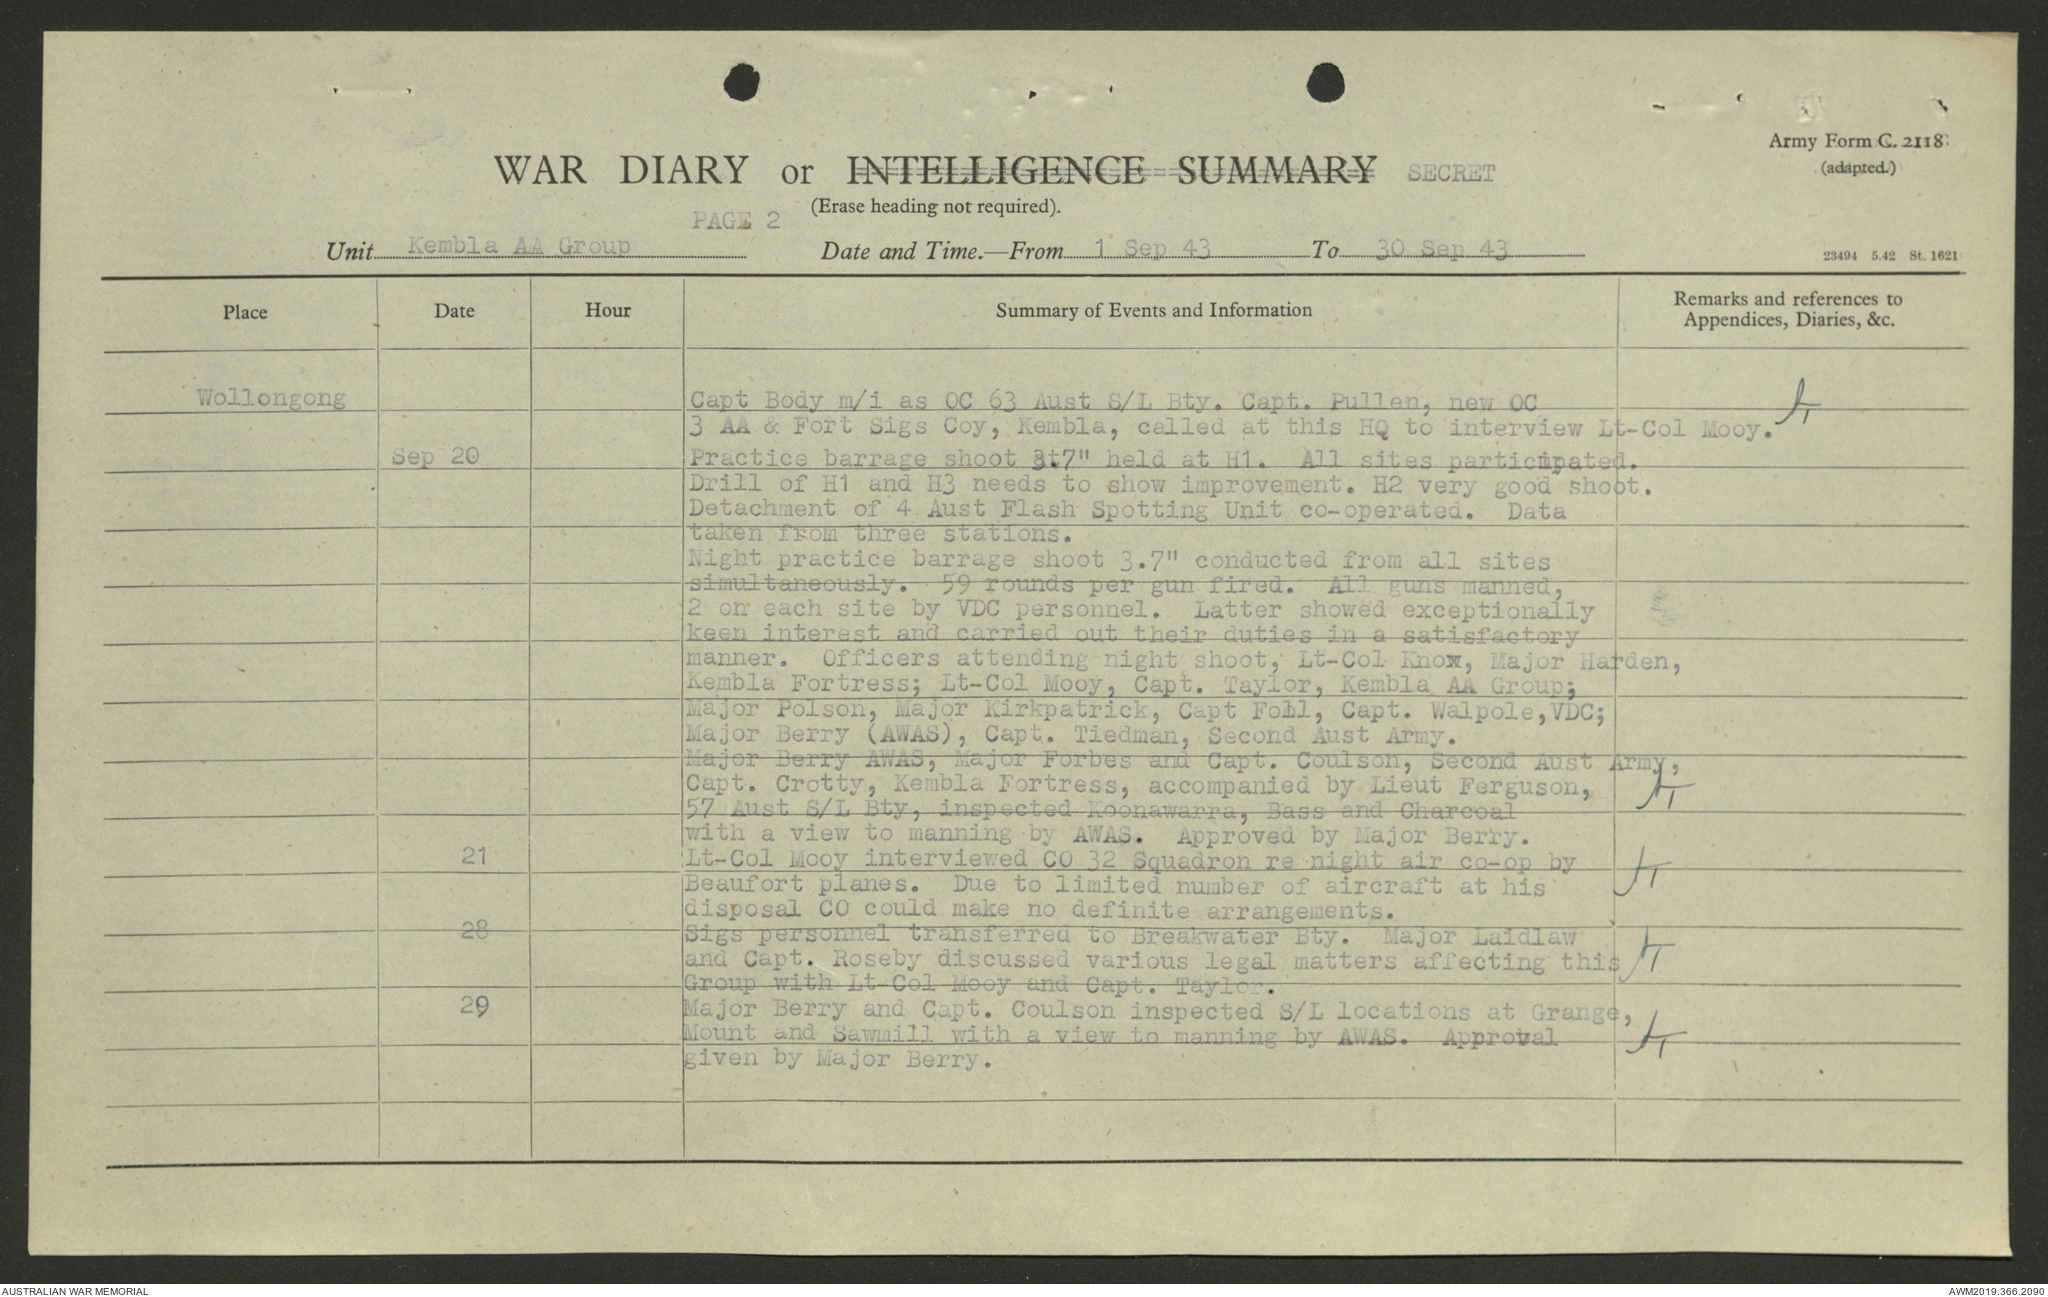 Army Form C. 2118.
(adapted.)
WAR DIARY or INTELLIGENCE SUMMARY SECRET
(Erase heading not required).
PAGE 2
Unit Kembla AA Group Date and Time.—From 1 Sep 43 To 30 Sep 43
23494 5.42 St. 1621
Place Date Hour Summary of Events and Information Remarks and references to
Appendices, Diaries, &c.
Wollongong Capt Body m/i as OC 63 Aust S/L Bty. Capt. Pullen, new OC
3 AA & Fort Sigs Coy, Kembla, called at this HQ to interview Lt-Col Mooy.
Sep 20 Practice barrage shoot 3.7" held at H1. All sites participated.
Drill of H1 and H3 needs to show improvement. H2 very good shoot.
Detachment of 4 Aust Flash Spotting Unit co-operated. Data
taken from three stations.
Night practice barrage shoot 3.7" conducted from all sites
simultaneously. 59 rounds per gun fired. All guns manned,
2 on each site by VDC personnel. Latter showed exceptionally
keen interest and carried out their duties in a satisfactory
manner. Officers attending night shoot, Lt-Col Knox, Major Harden,
Kembla Fortress; Lt-Col Mooy, Capt. Taylor, Kembla AA Group;
Major Polson, Major Kirkpatrick, Capt Fohl, Capt. Walpole,VDC;
Major Berry (AWAS), Capt. Tiedman, Second Aust Army.
Major Berry AWAS, Major Forbes and Capt. Coulson, Second Aust Army,
Capt. Crotty, Kembla Fortress, accompanied by Lieut Ferguson,
57 Aust S/L Bty, inspected Koonawarra, Bass and Charcoal
with a view to manning by AWAS. Approved by Major Berry.
21 Lt-Col Mooy interviewed CO 32 Squadron re night air co-op by
Beaufort planes. Due to limited number of aircraft at his
disposal CO could make no definite arrangements.
28 Sigs personnel transferred to Breakwater Bty. Major Laidlaw
and Capt. Roseby discussed various legal matters affecting this
Group with Lt-Col Mooy and Capt. Taylor.
29 Major Berry and Capt. Coulson inspected S/L locations at Grange,
Mount and Sawmill with a view to manning by AWAS. Approval
given by Major Berry.
AUSTRALIAN WAR MEMORIAL AWM2019.366.2090